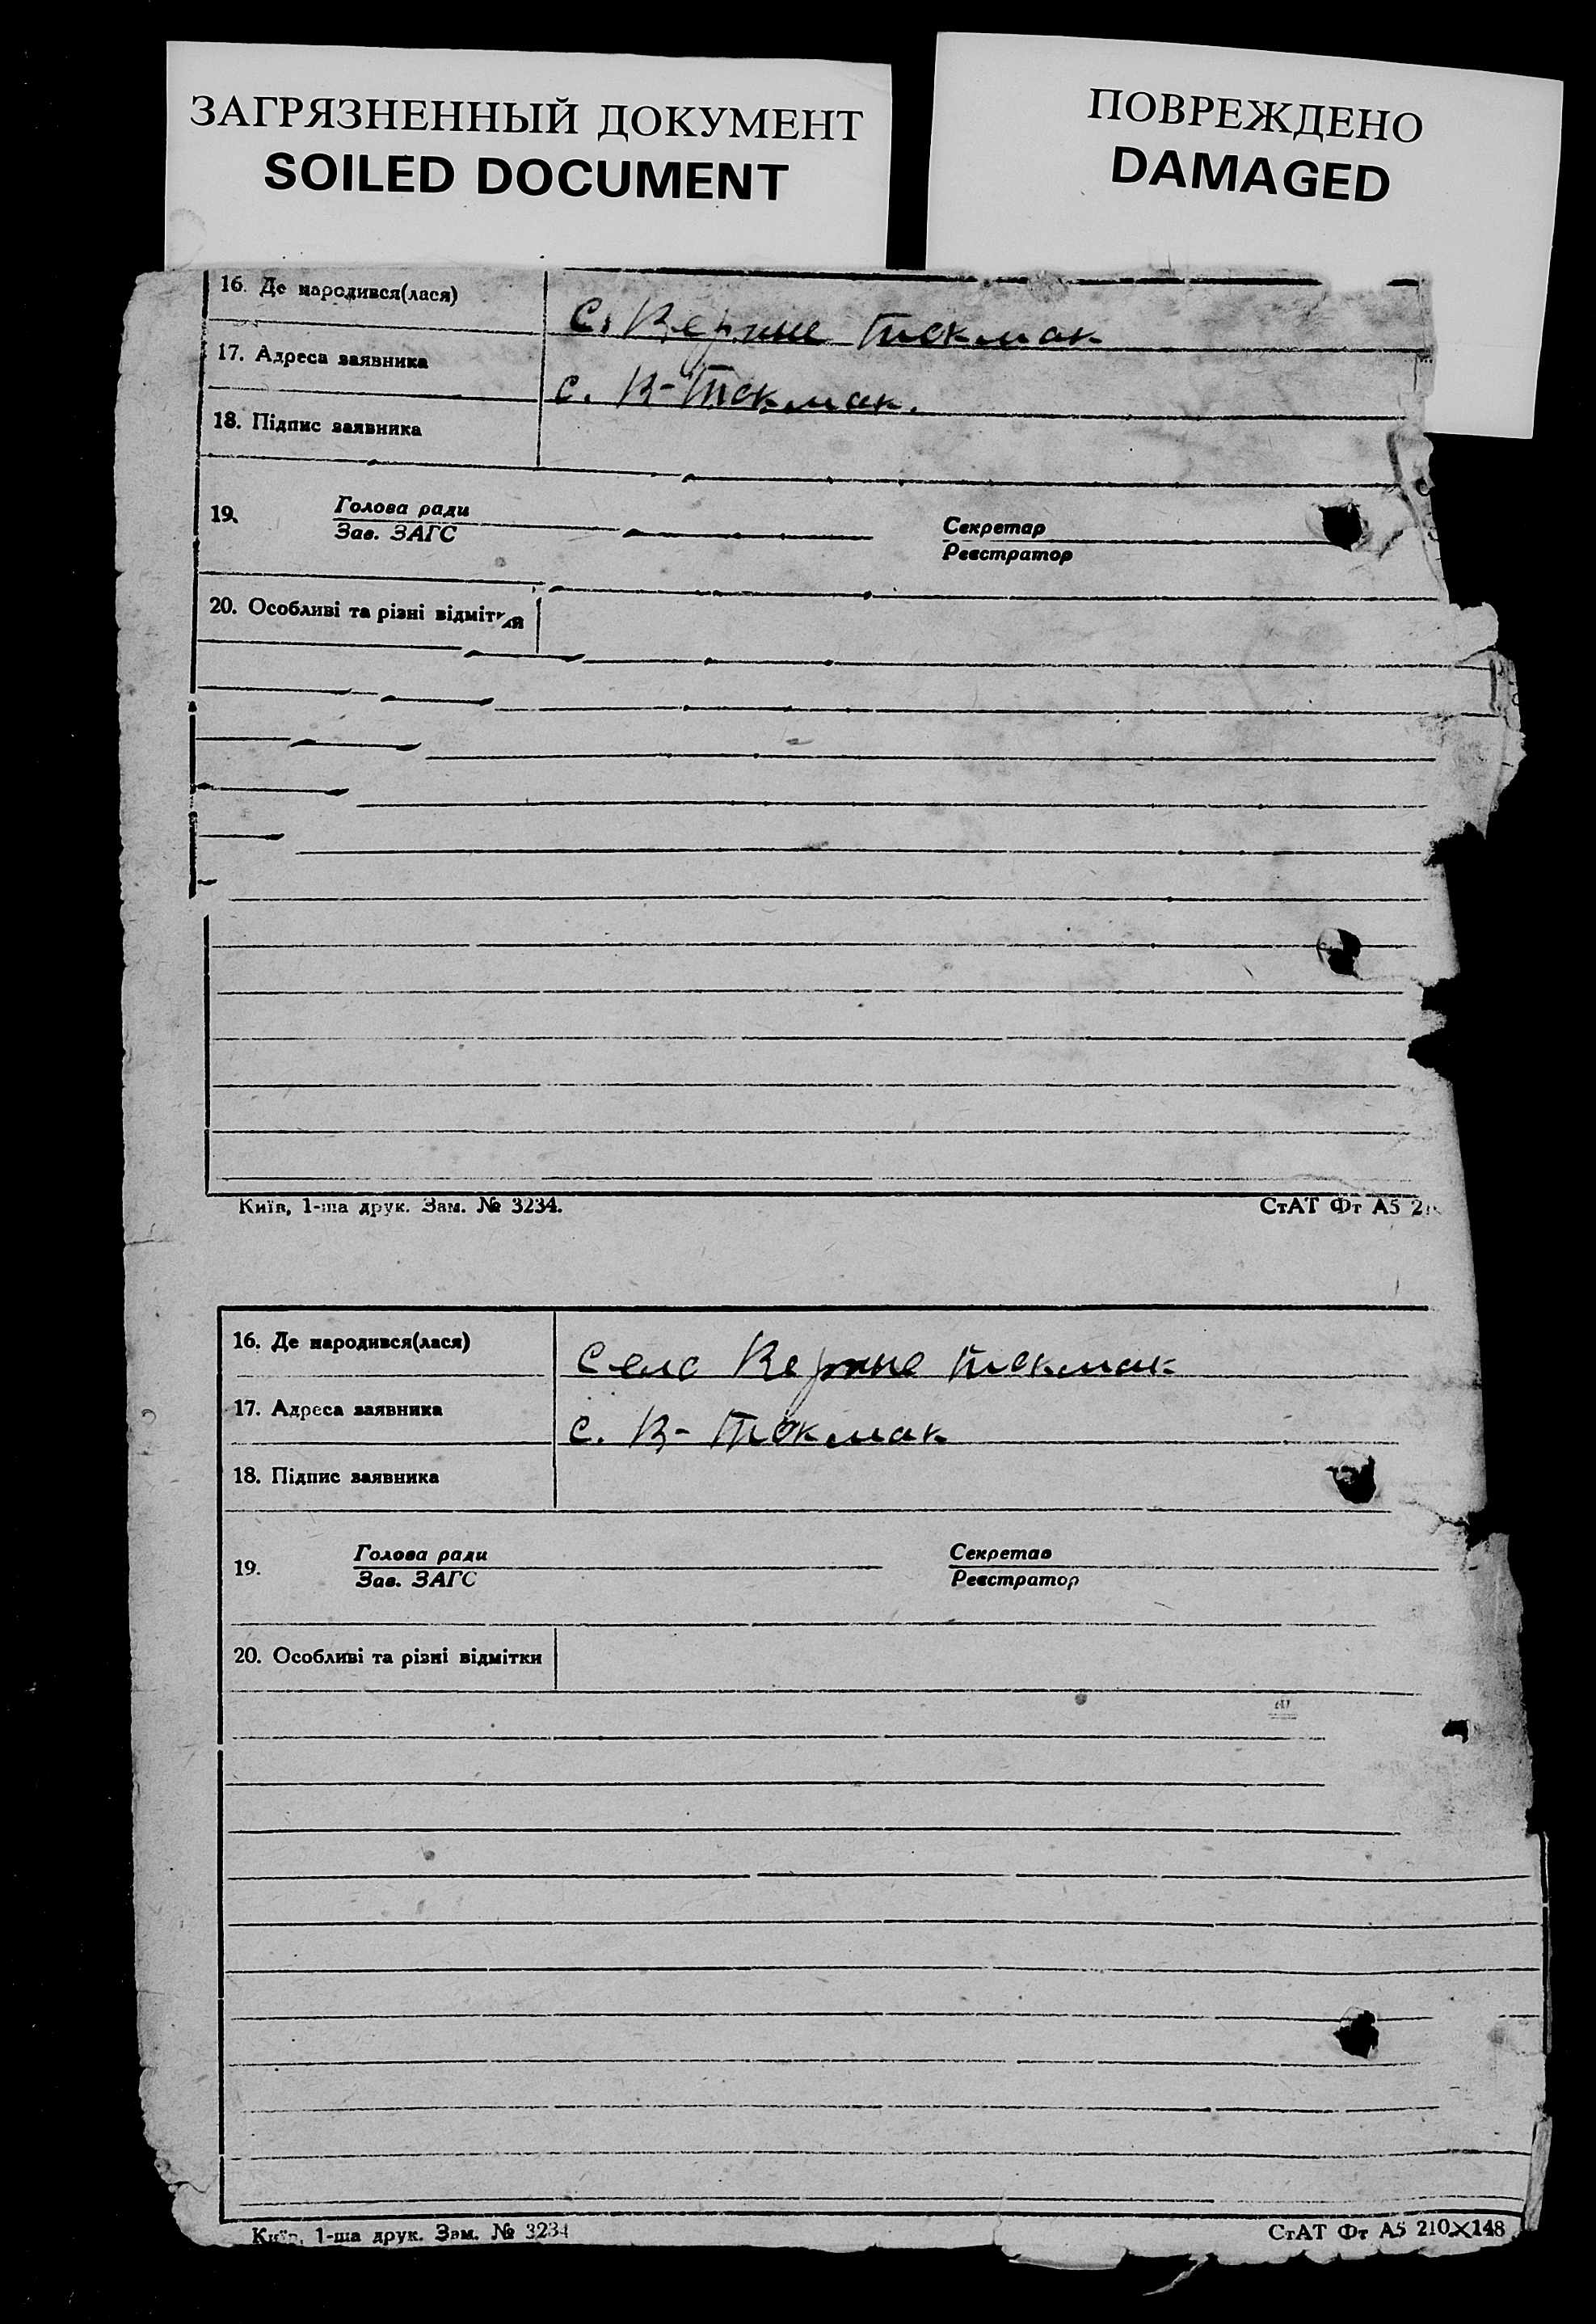 ЗАГРЯЗНЕННЫЙ ДОКУМЕНТ
SOILED DOCUMENT
ПОВРЕЖДЕНО
DAMAGED
16. Де народився(лася) С. Верхне Токмак
17. Адреса заявника с. В-Токмак.
18. Підпис заявника
19. Голова ради Секретар
Зав. ЗАГС Реєстратор
20. Особливі та різні відмітки
Київ, 1-ша друк. Зам. № 3234. СтАТ Фт А5
16. Де народився(лася) Село Верхне Токмак
17. Адреса заявника с. В-Токмак
18. Підпис заявника
19. Голова ради Секретар
Зав. ЗАГС Реєстратор
20. Особливі та різні відмітки
Київ, 1-ша друк. Зам. № 3234 СтАТ Фт А5 210×148